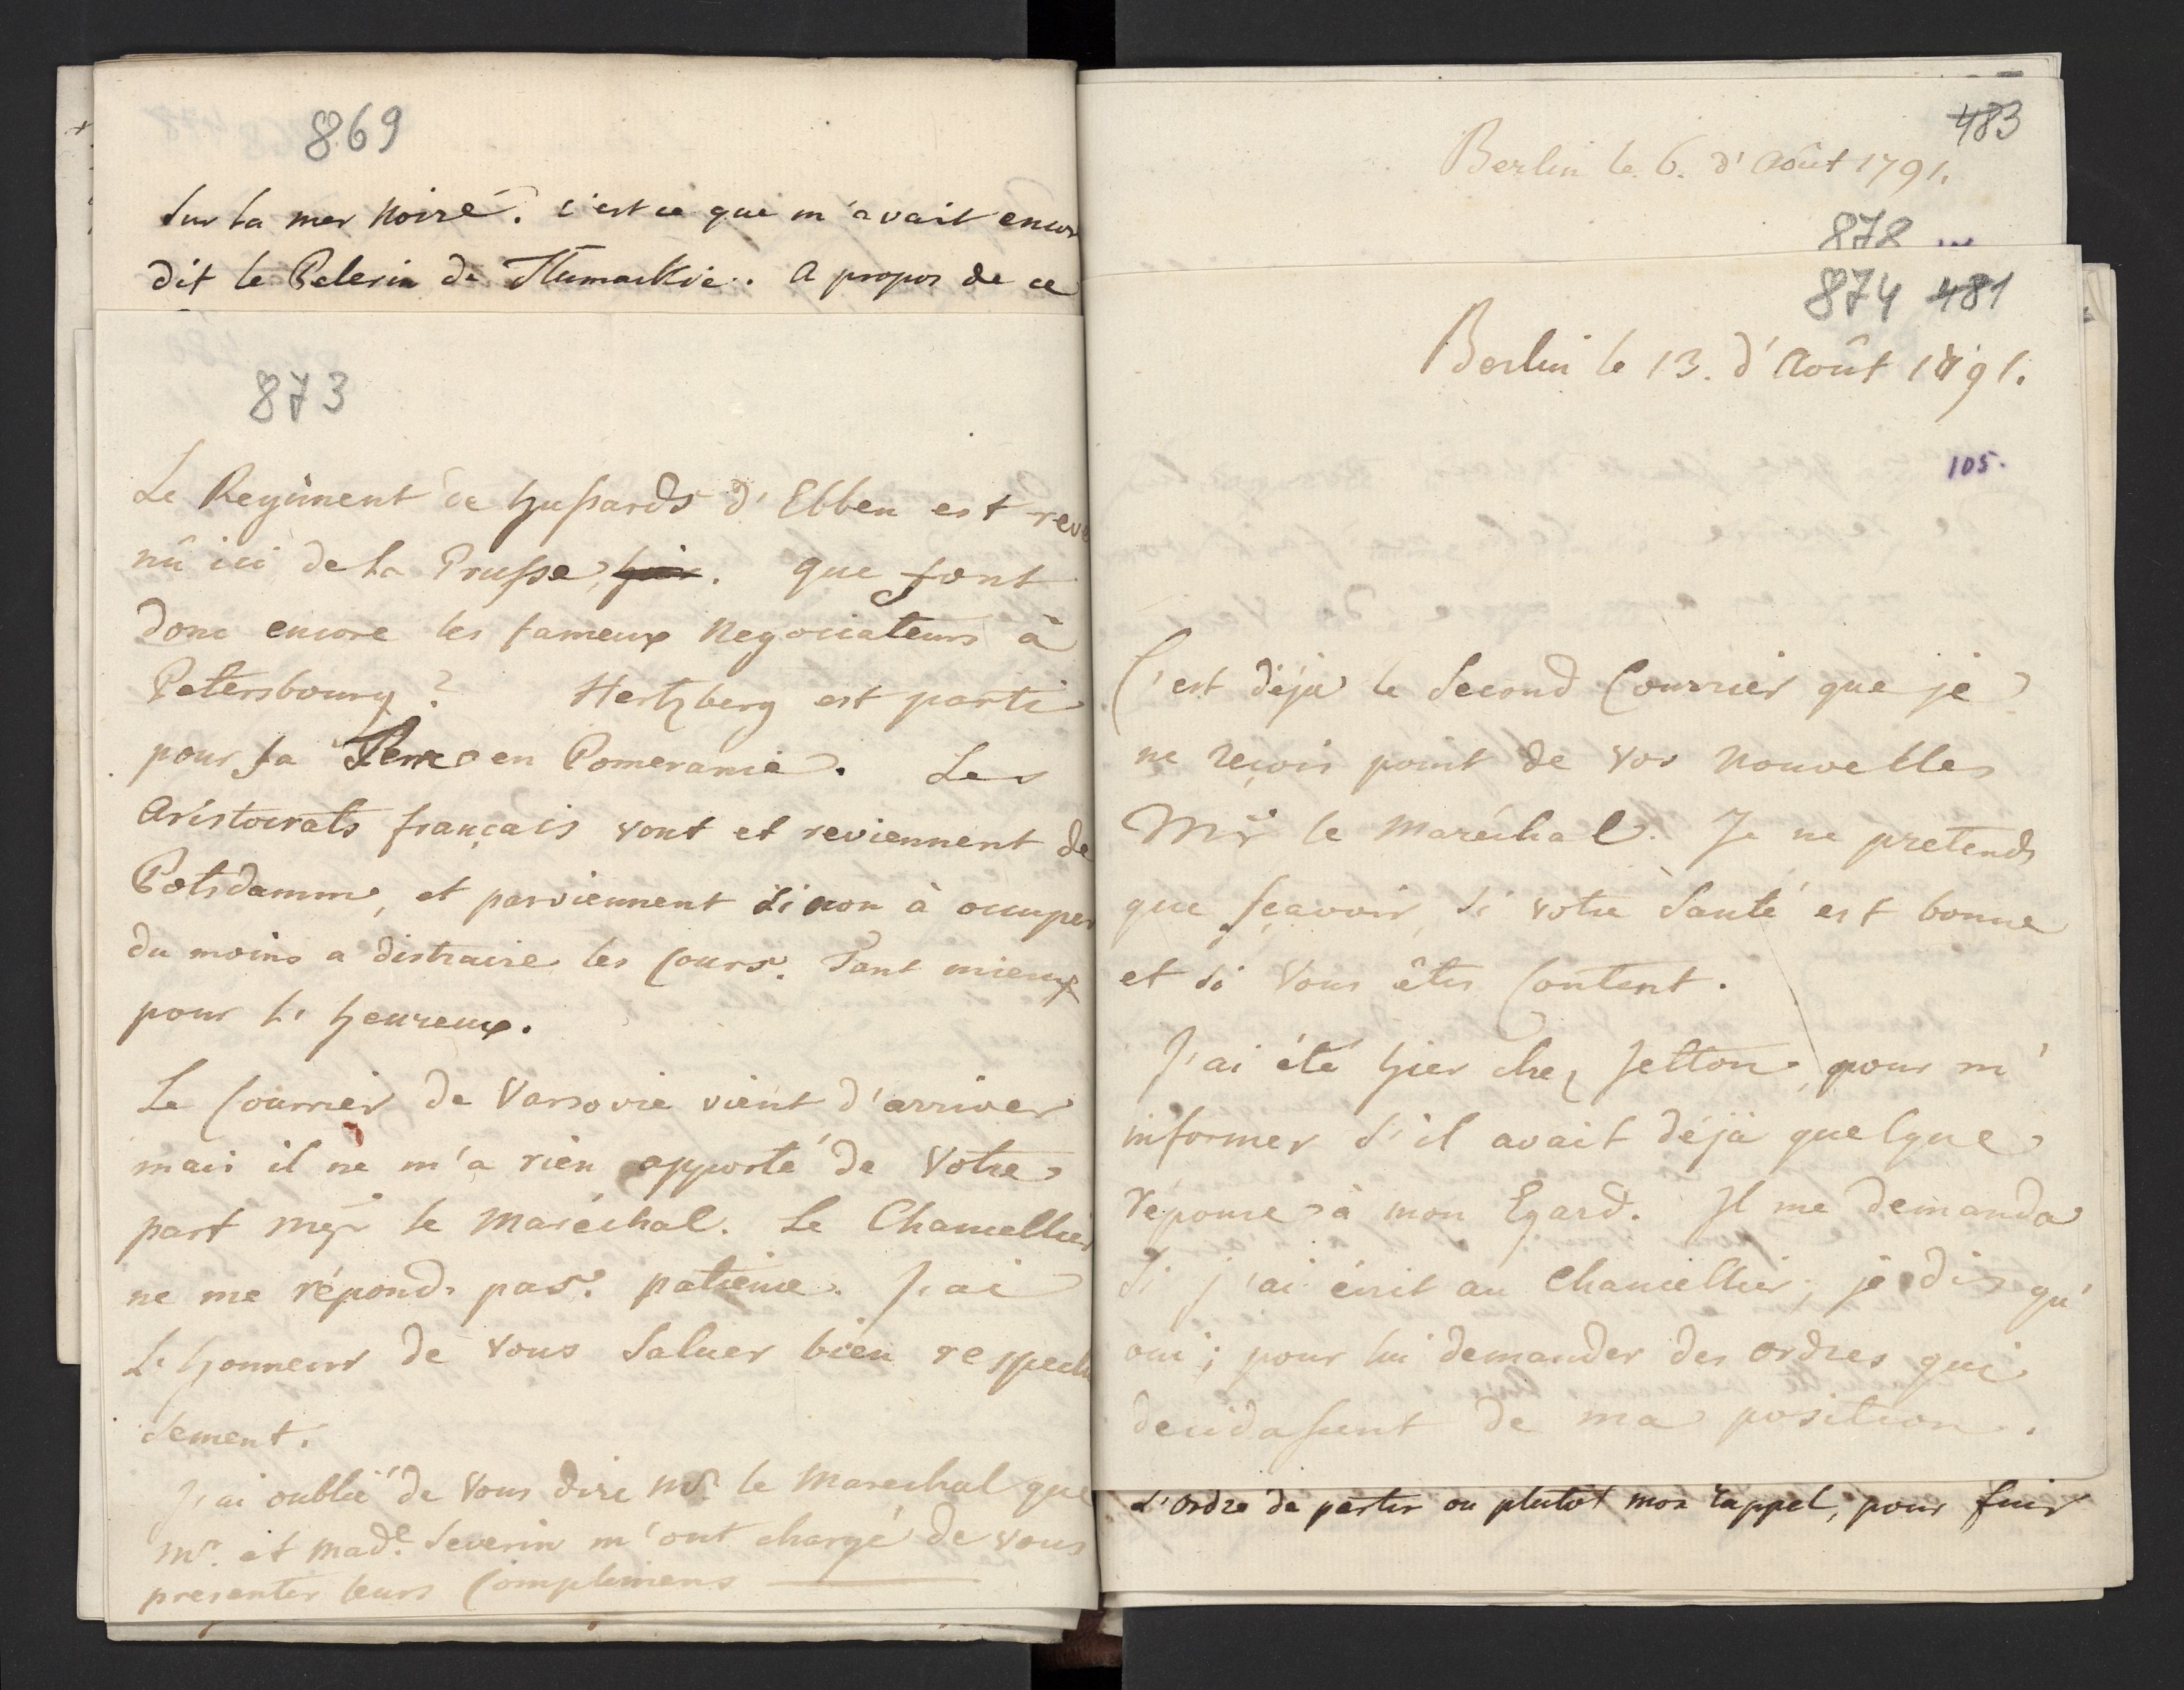 869
Sur la mer Noire. c'est ce que m'avait encor
dit le Pelerin de Tlumackie. A propos de ce
873
Le Regiment de hussards d'Ebben est reve
nû ici de la Prusse hier. que font
donc encore les fameux Negociateurs à
Petersbourg? Hertzberg est parti
pour sa Terre en Pomeranie. Les
Aristocrats français vont et reviennent de
Potsdamm, et parviennent si non à occuper
du moins a distraire les Cours. Tant mieux
pour l'heureux.
Le Courrier de Varsovie vient d'arriver
mais il ne m'a rien apporté de Votre
part Mgr le Maréchal. Le Chancellier
ne me répond pas. patience. J'ai
L'honneur de vous Saluer bien respectu
sement.
J'ai oublié de vous dire Mr. le Marechal que
Mr. et Made. Severin m'ont chargé de vous
presenter leurs Complimens
483
Berlin le 6. d'Août 1791.
878
874 481
Berlin le 13. d'Août 1791.
105.
C'est déja le Second Courrier que je
ne reçois point de vos Nouvelles
Mgr le Maréchal. Je ne pretends
que sçavoir, Si votre Santé est bonne
et Si Vous êtes Content.
J'ai été hier chez Jetton, pour m'
informer S'il avait déjà quelque
réponse à mon Egard. Il me demanda
Si j'ai écrit au Chancellier; je dis qu'
oui; pour lui demander des ordres qui
decidassent de ma position.
L'ordre de partir ou plutot mon rappel, pour finir